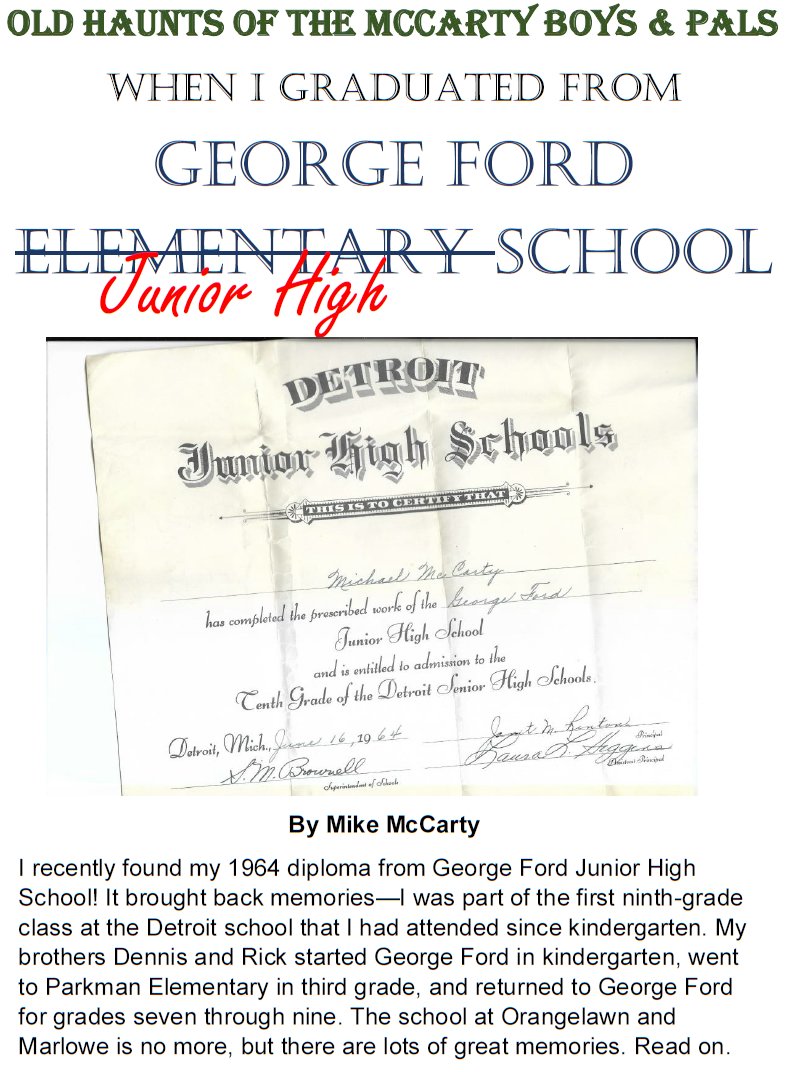 OLD HAUNTS OF THE MCCARTY BOYS & PALS
WHEN I GRADUATED FROM
GEORGE FORD
ELEMENTARY SCHOOL
Junior High
DETROIT
Junior High Schools
THIS IS TO CERTIFY THAT
Michael McCarty
has completed the prescribed work of the George Ford
Junior High School
and is entitled to admission to the
Tenth Grade of the Detroit Senior High Schools.
Detroit, Mich., June 16, 1964
Principal
S. M. Brownell
Laura L. Higgins
Superintendent of Schools
Principal
By Mike McCarty
I recently found my 1964 diploma from George Ford Junior High
School! It brought back memories—I was part of the first ninth-grade
class at the Detroit school that I had attended since kindergarten. My
brothers Dennis and Rick started George Ford in kindergarten, went
to Parkman Elementary in third grade, and returned to George Ford
for grades seven through nine. The school at Orangelawn and
Marlowe is no more, but there are lots of great memories. Read on.